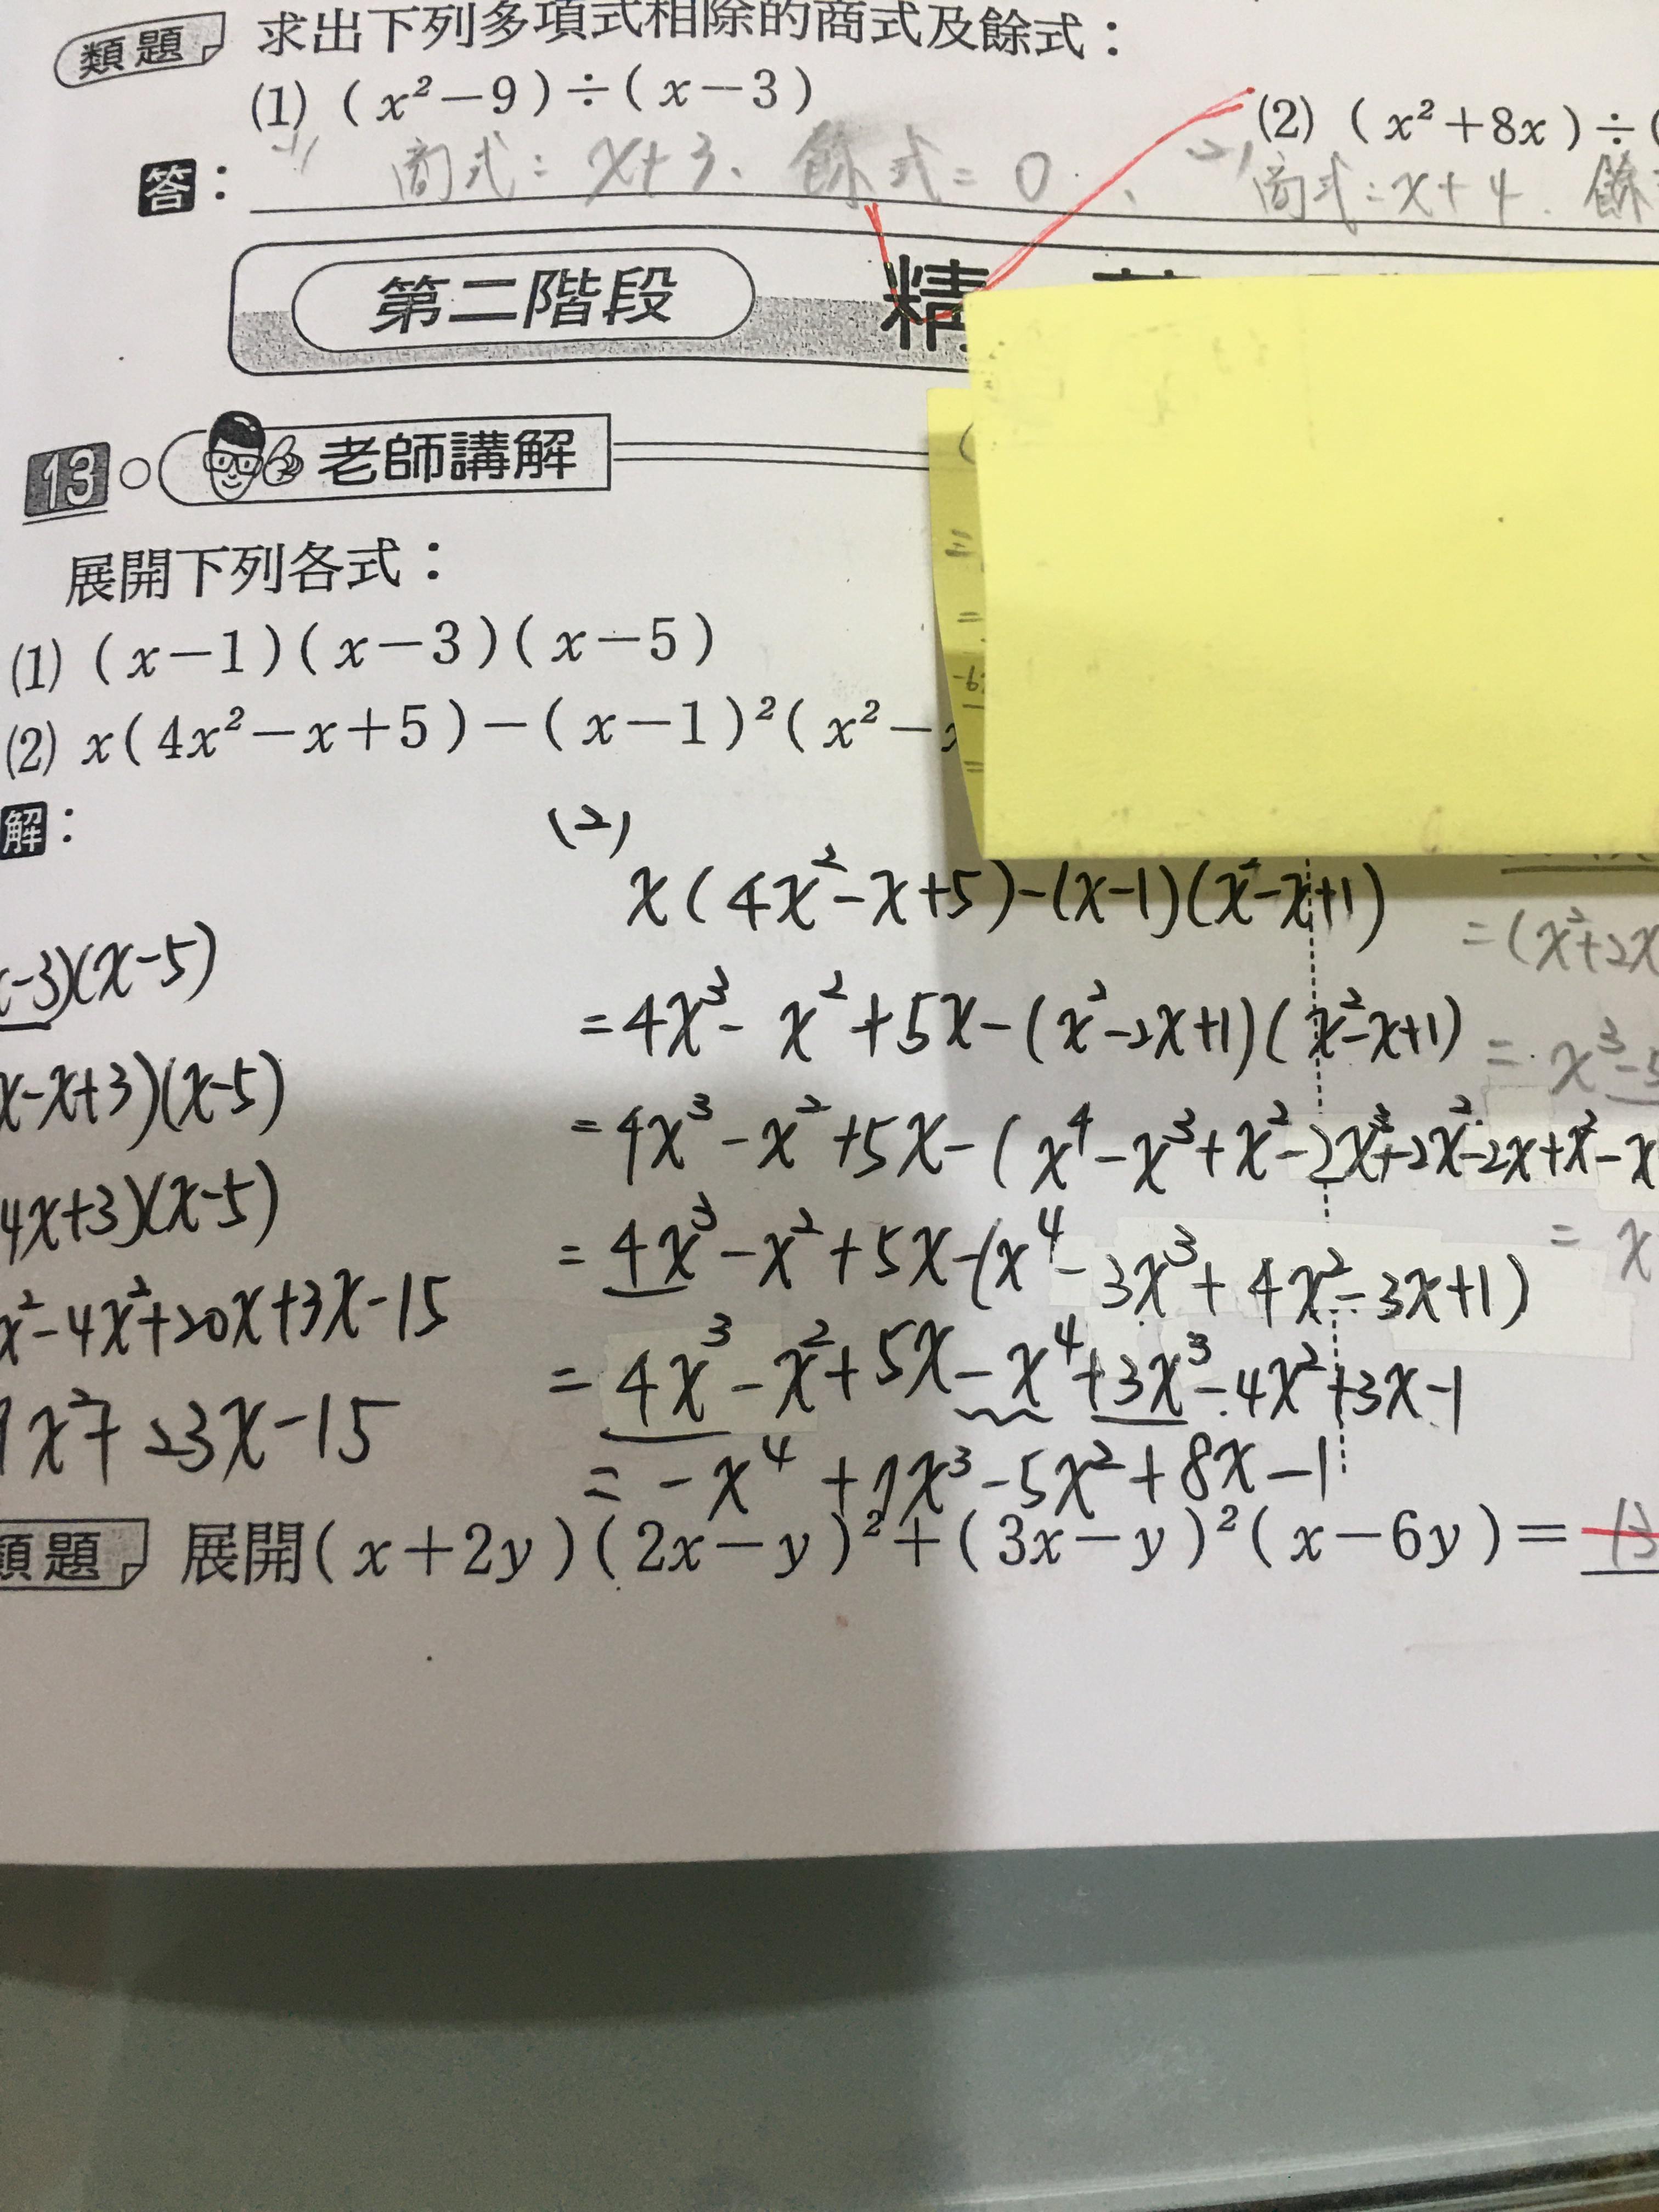 類題 求出下列多項式相除的商式及餘式：
(1) (x²－9)÷(x－3)
(2) (x²+8x)÷(
答： (1) 商式：x+3、餘式=0、 (2) 商式：x+4. 餘
第二階段 精
13 老師講解
展開下列各式：
(1) (x－1)(x－3)(x－5)
(2) x(4x²－x+5)－(x－1)²(x²－
解：
-3)(x-5)
x-x+3)(x-5)
4x+3)(x-5)
x²-4x²+20x+3x-15
x²+23x-15
(2)
x(4x²-x+5)-(x-1)(x²-x+1)
=4x³-x²+5x-(x²-2x+1)(x²-x+1)
=4x³-x²+5x-(x⁴-x³+x²-2x³+2x²-2x+x²-x
=4x³-x²+5x-(x⁴-3x³+4x²-3x+1)
=4x³-x²+5x-x⁴+3x³-4x²+3x-1
=-x⁴+7x³-5x²+8x-1
=(x²+2x
=x³-5
=x
類題 展開(x+2y)(2x－y)²+(3x－y)²(x－6y)=